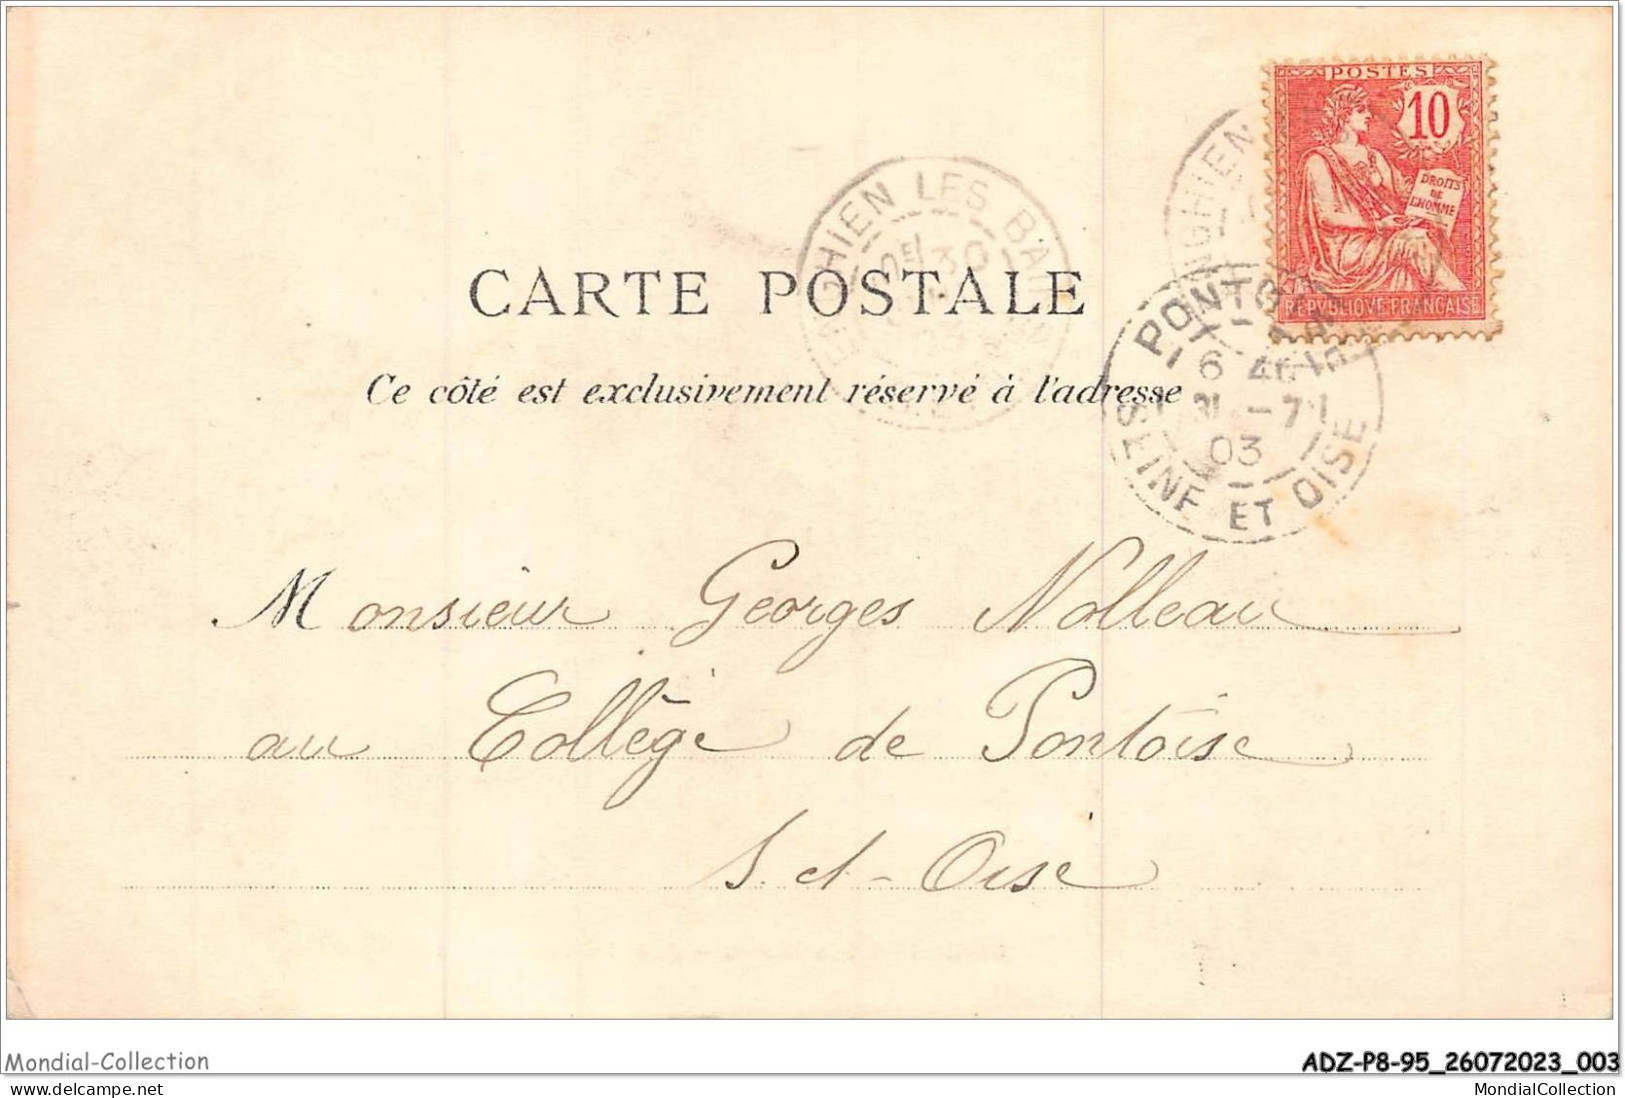 POSTES
10
DROITS
DE
L'HOMME
REPVBLIQVE FRANCAISE
LES
PONTOISE
6 4
31 -7
03
SEINE ET OISE
CARTE POSTALE
Ce côté est exclusivement réservé à l'adresse
Monsieur Georges Nolleau
au Collège de Pontoise
S. et-Oise
Mondial-Collection
ADZ-P8-95_26072023_003
delcampe.net
MondialCollection